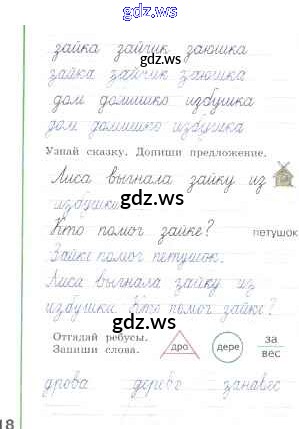 gdz.ws
зайка зайчик заюшка
зайка зайчик заюшка
дом домишко избушка
дом домишко избушка
gdz.ws
Узнай сказку. Допиши предложение.
Лиса выгнала зайку из
избушки
gdz.ws
Кто помог зайке?
петушок
Зайке помог петушок.
Лиса выгнала зайку из
избушки. Кто помог зайке?
gdz.ws
Отгадай ребусы.
Запиши слова.
дро
дере
за
вес
дрова дерево занавес
18
gdz.ws